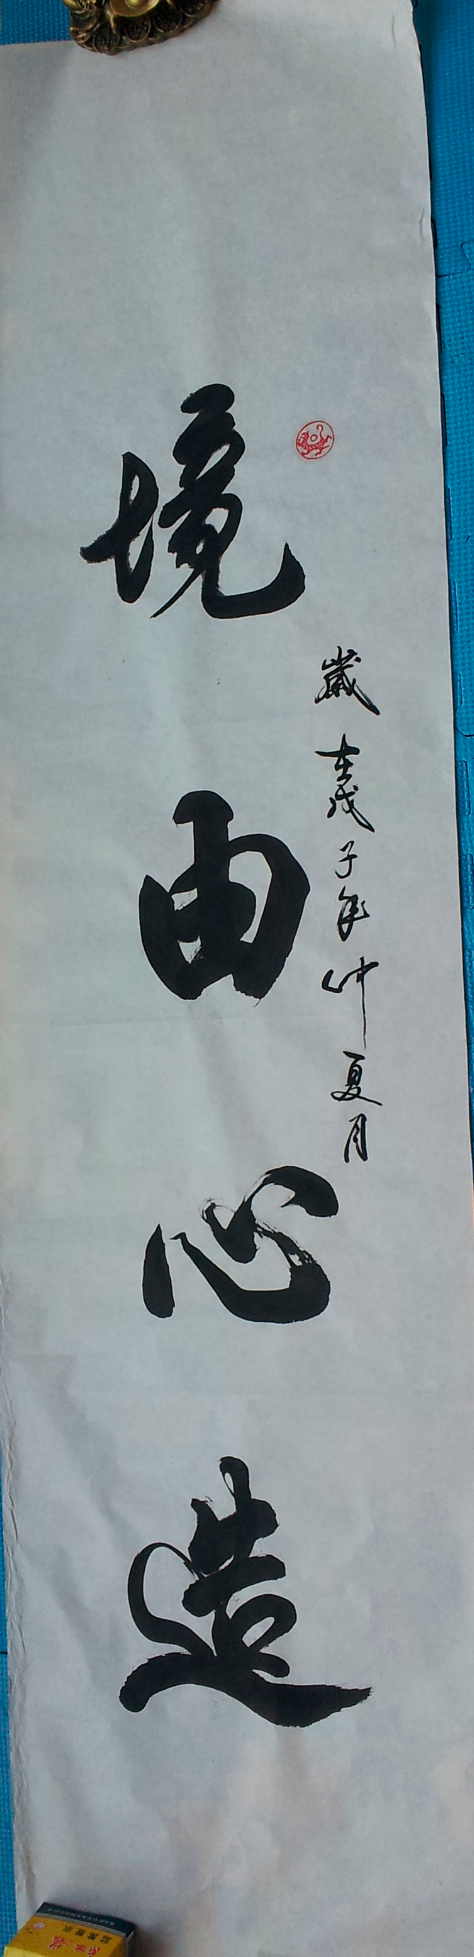 境由心造
歲在戊子年仲夏月